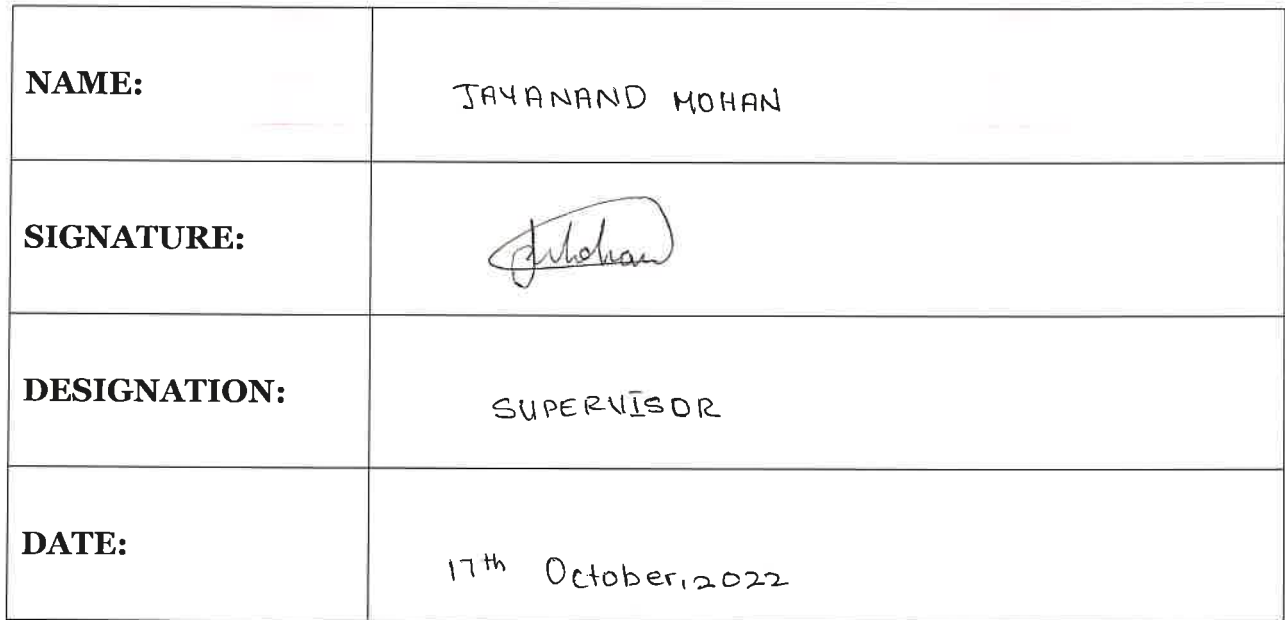 NAME: JAYANAND MOHAN
SIGNATURE: JMohan
DESIGNATION: SUPERVISOR
DATE: 17th October, 2022